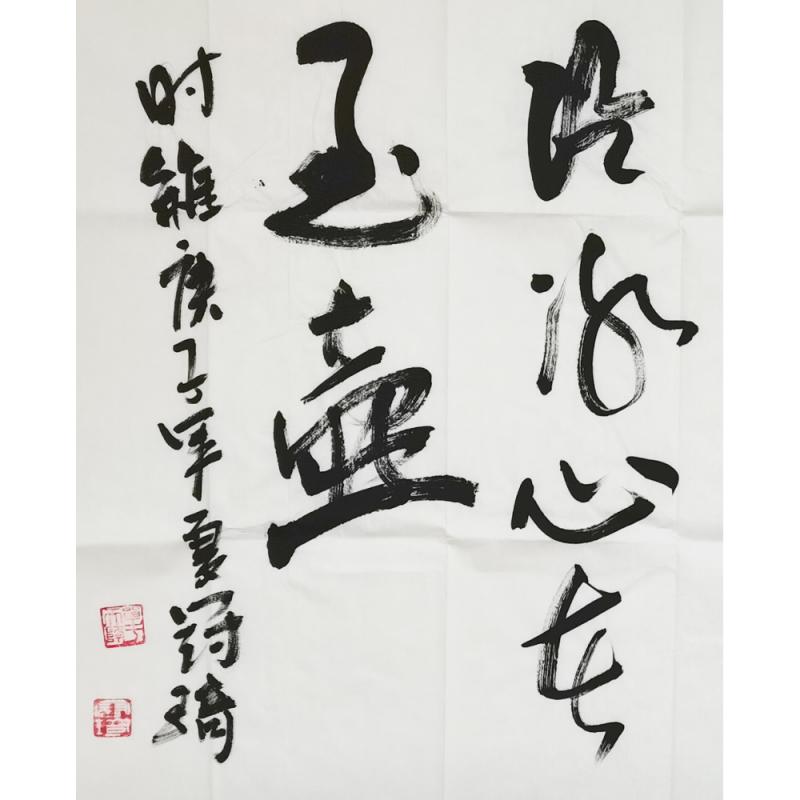 片冰心在
玉壺
时维庚子年夏诗琦